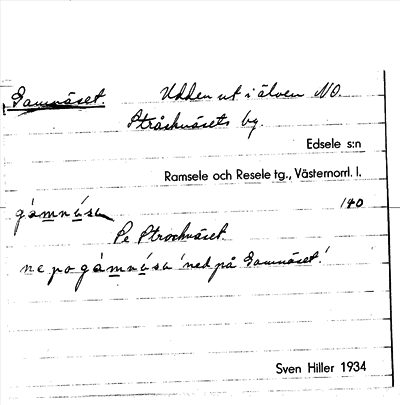 Gamnäset. Udden ut i älven NO.
Stråsknäsets by.
Edsele s:n
Ramsele och Resele tg., Västernorrl. l.
140
gámnä̀sa
Pe
ne po gámnä̀sa 'ned på Gamnäset'.
Sven Hiller 1934